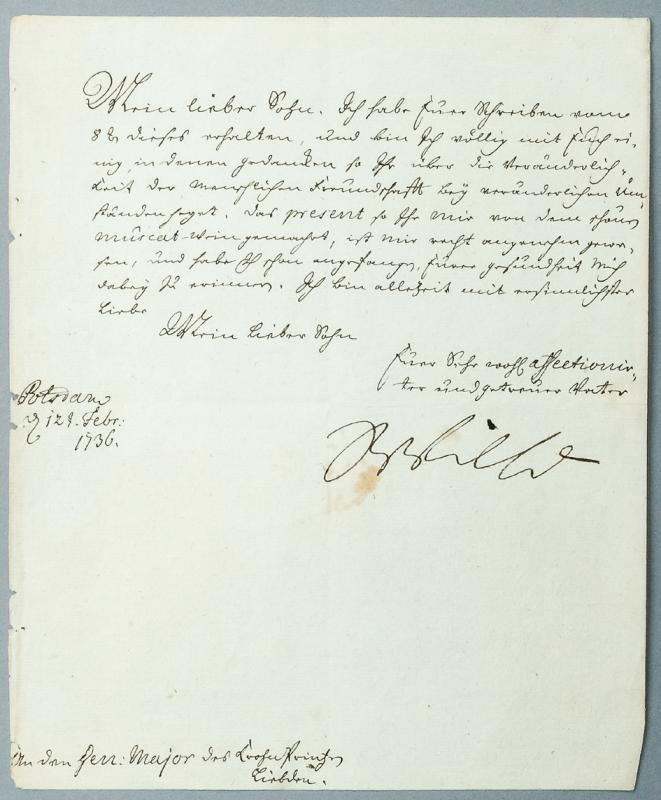 Mein lieber Sohn. Ich habe Euer Schreiben vom
8t dieses erhalten, und bin Ich völlig mit Euch ei-
nig, in denen gedancken so Ihr über die Veränderlich-
keit der Menschlichen Freundschafft bey veränderlichen Üm-
ständen heget. Das present so Ihr mir von dem schönen
Muscat-Wein gemacht, ist mir recht angenehm gewe-
sen, und habe Ich schon angefangen, Eurer gesundheit Mich
dabey zu erinnern. Ich bin allezeit mit ersinnlichster
Liebe
Mein lieber Sohn
Euer Sehr wohl affectionir-
ter und getreuer Vater
Potsdam
d 12t. Febr:
1736.
An den Gen: Major des CrohnPrintzen
Liebden.